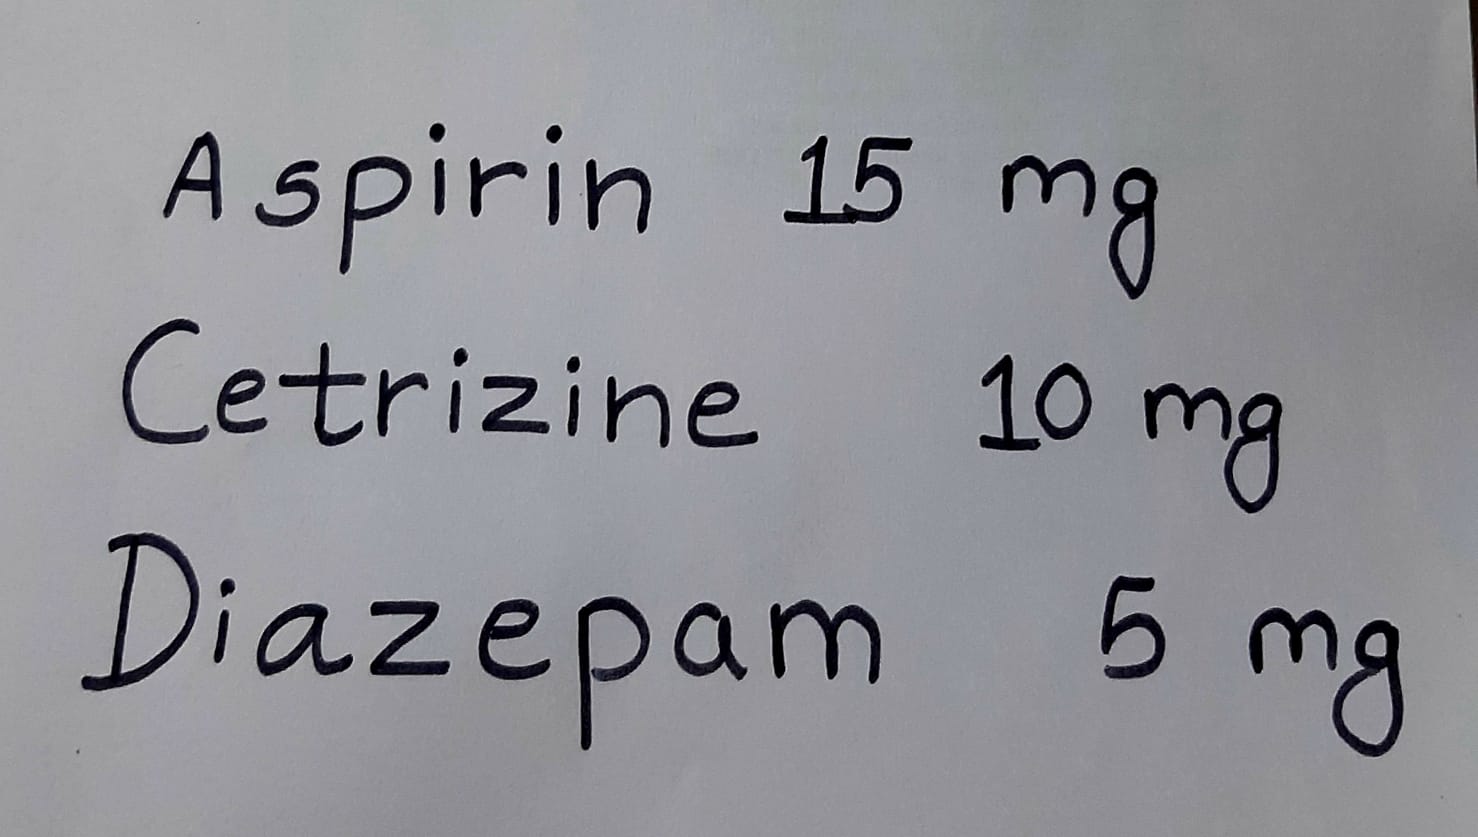 Aspirin 15 mg
Cetrizine 10 mg
Diazepam 5 mg